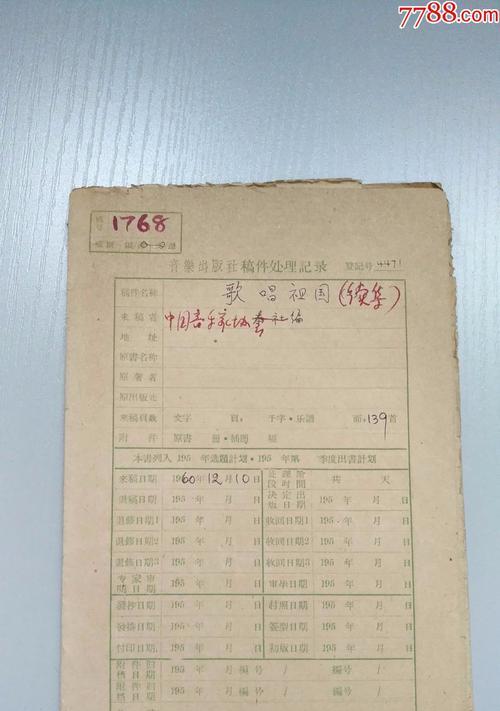 7788.com
1768
音樂出版社稿件处理記录 登記号 4471
稿件名称 歌唱祖国(续集)
來稿者 中国音乐家协会 社编
地址
原書名称
原著者
原出版处
來稿頁数 文字 頁, 千字·乐譜 面, 139首
附件 原書 册·插图 幅
本書列入 195 年选題計划·195 年第 季度出書計划
來稿日期 1960年12月10日 处理阶段时間 共 天
退稿日期 195 年 月 日 决定出版日期 195 年 月 日
退修日期1 195 年 月 日 收回日期1 195 年 月 日
退修日期2 195 年 月 日 收回日期2 195 年 月 日
退修日期3 195 年 月 日 收回日期3 195 年 月 日
专家审閱日期 195 年 月 日 审毕日期 195 年 月 日
發抄日期 195 年 月 日 封照日期 195 年 月 日
發排日期 195 年 月 日 簽型日期 195 年 月 日
付印日期 195 年 月 日 初版日期 195 年 月 日
附件归档日期 195 年 月 日 編号 / 編号 /
附件归档日期 195 年 月 日 編号 / 編号 /